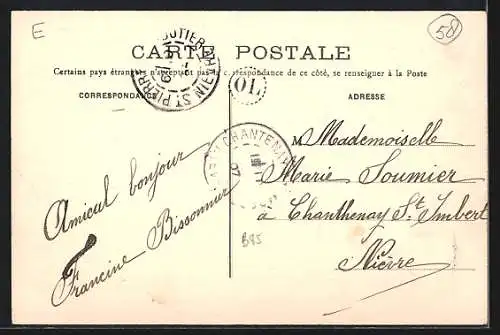 E
58
CARTE POSTALE
Certains pays étrangers n'acceptant pas la correspondance de ce côté, se renseigner à la Poste
CORRESPONDANCE
ADRESSE
OL
CHANTENAY
07
ST PIERRE
Amical bonjour
Francine Bissonnier
M Mademoiselle
Marie Soumier
à Chanthenay St Imbert
Nièvre
B85